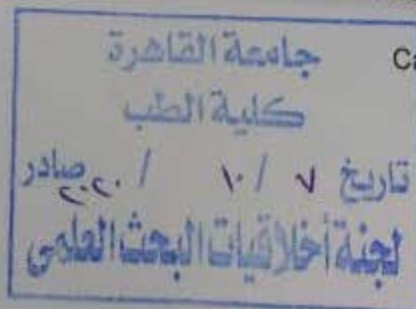 جامعة القاهرة
Ca
كلية الطب
تاريخ ٧ / ١٠ / ٢٠٢٠ صادر
لجنة أخلاقيات البحث العلمى